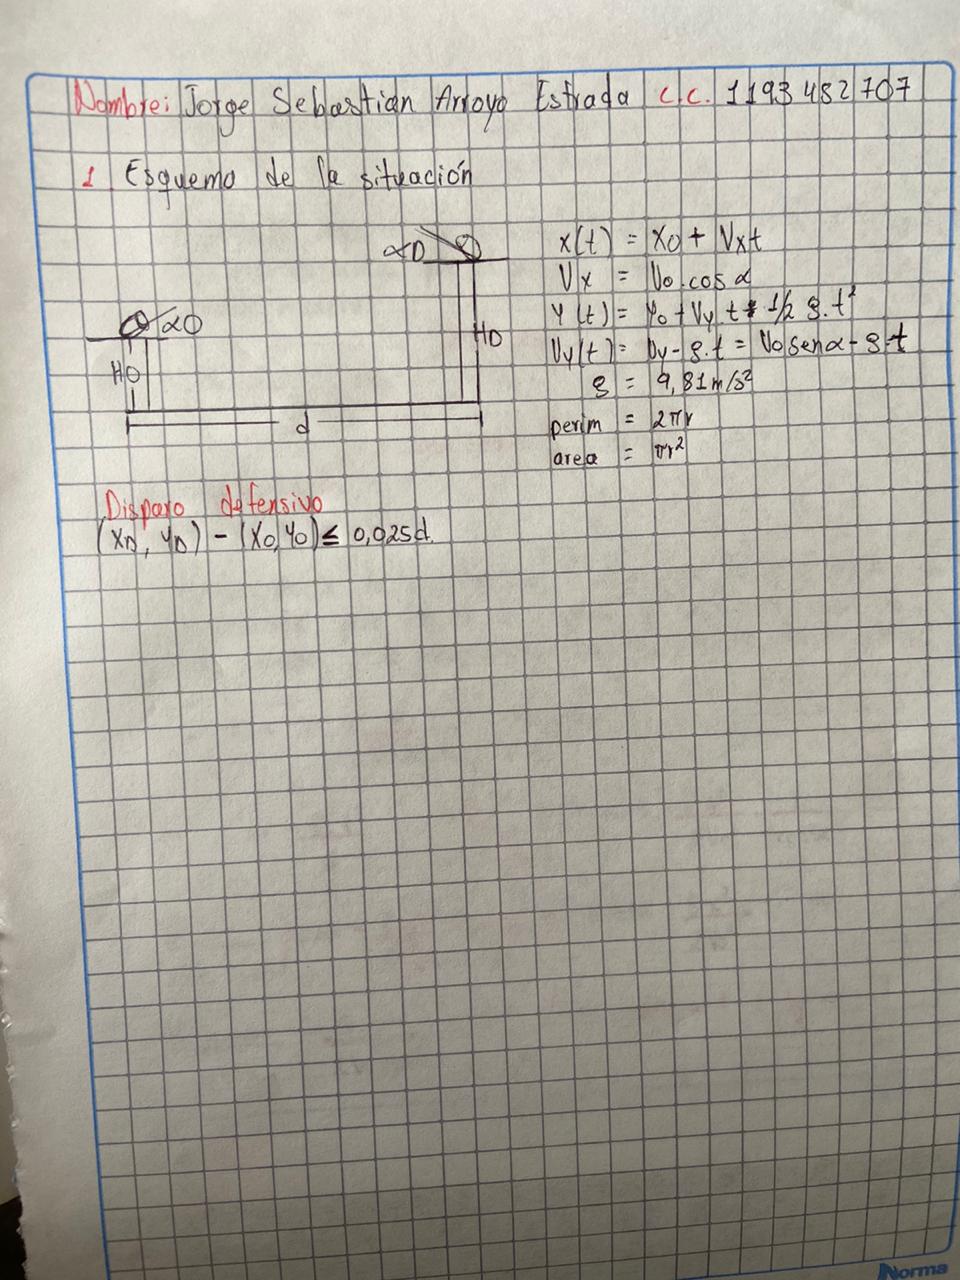 Nombre: Jorge Sebastian Arroyo Estrada C.C. 1193482707
1 Esquema de la situación
αD
αO
HO
HD
d
x(t) = X0 + Vxt
Vx = Vo.cos α
Y(t) = Yo + Vy.t 1/2 g.t²
Vy(t) = Vy - g.t = Vo sen α - g.t
g = 9,81m/s²
perim = 2πr
area = πr²
Disparo defensivo
(XD, YD) - (XO, YO) ≤ 0,025d.
Norma